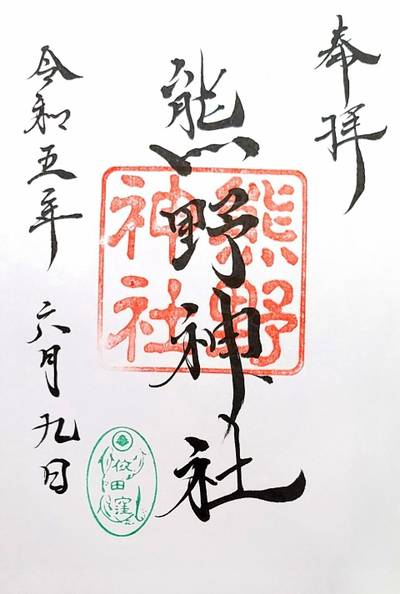 奉拝
熊野神社
熊野
神社
令和五年 六月九日
桜田窪